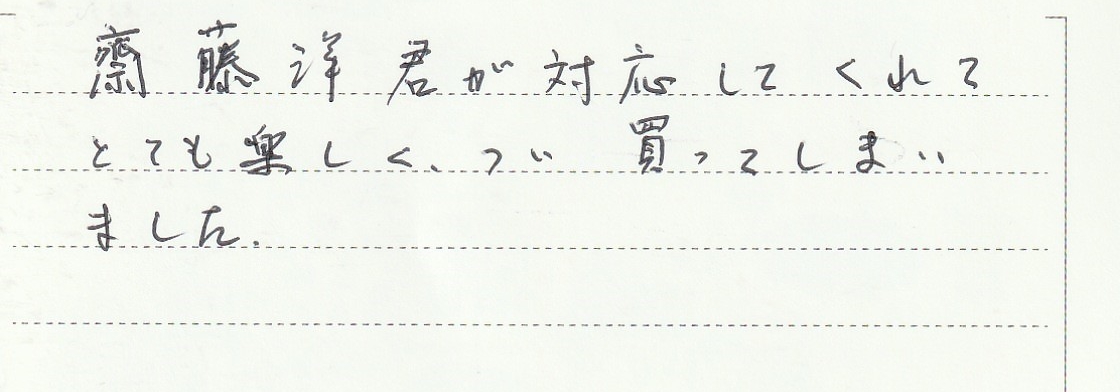 齋藤洋君が対応してくれて
とても楽しく、つい 買ってしまい
ました.